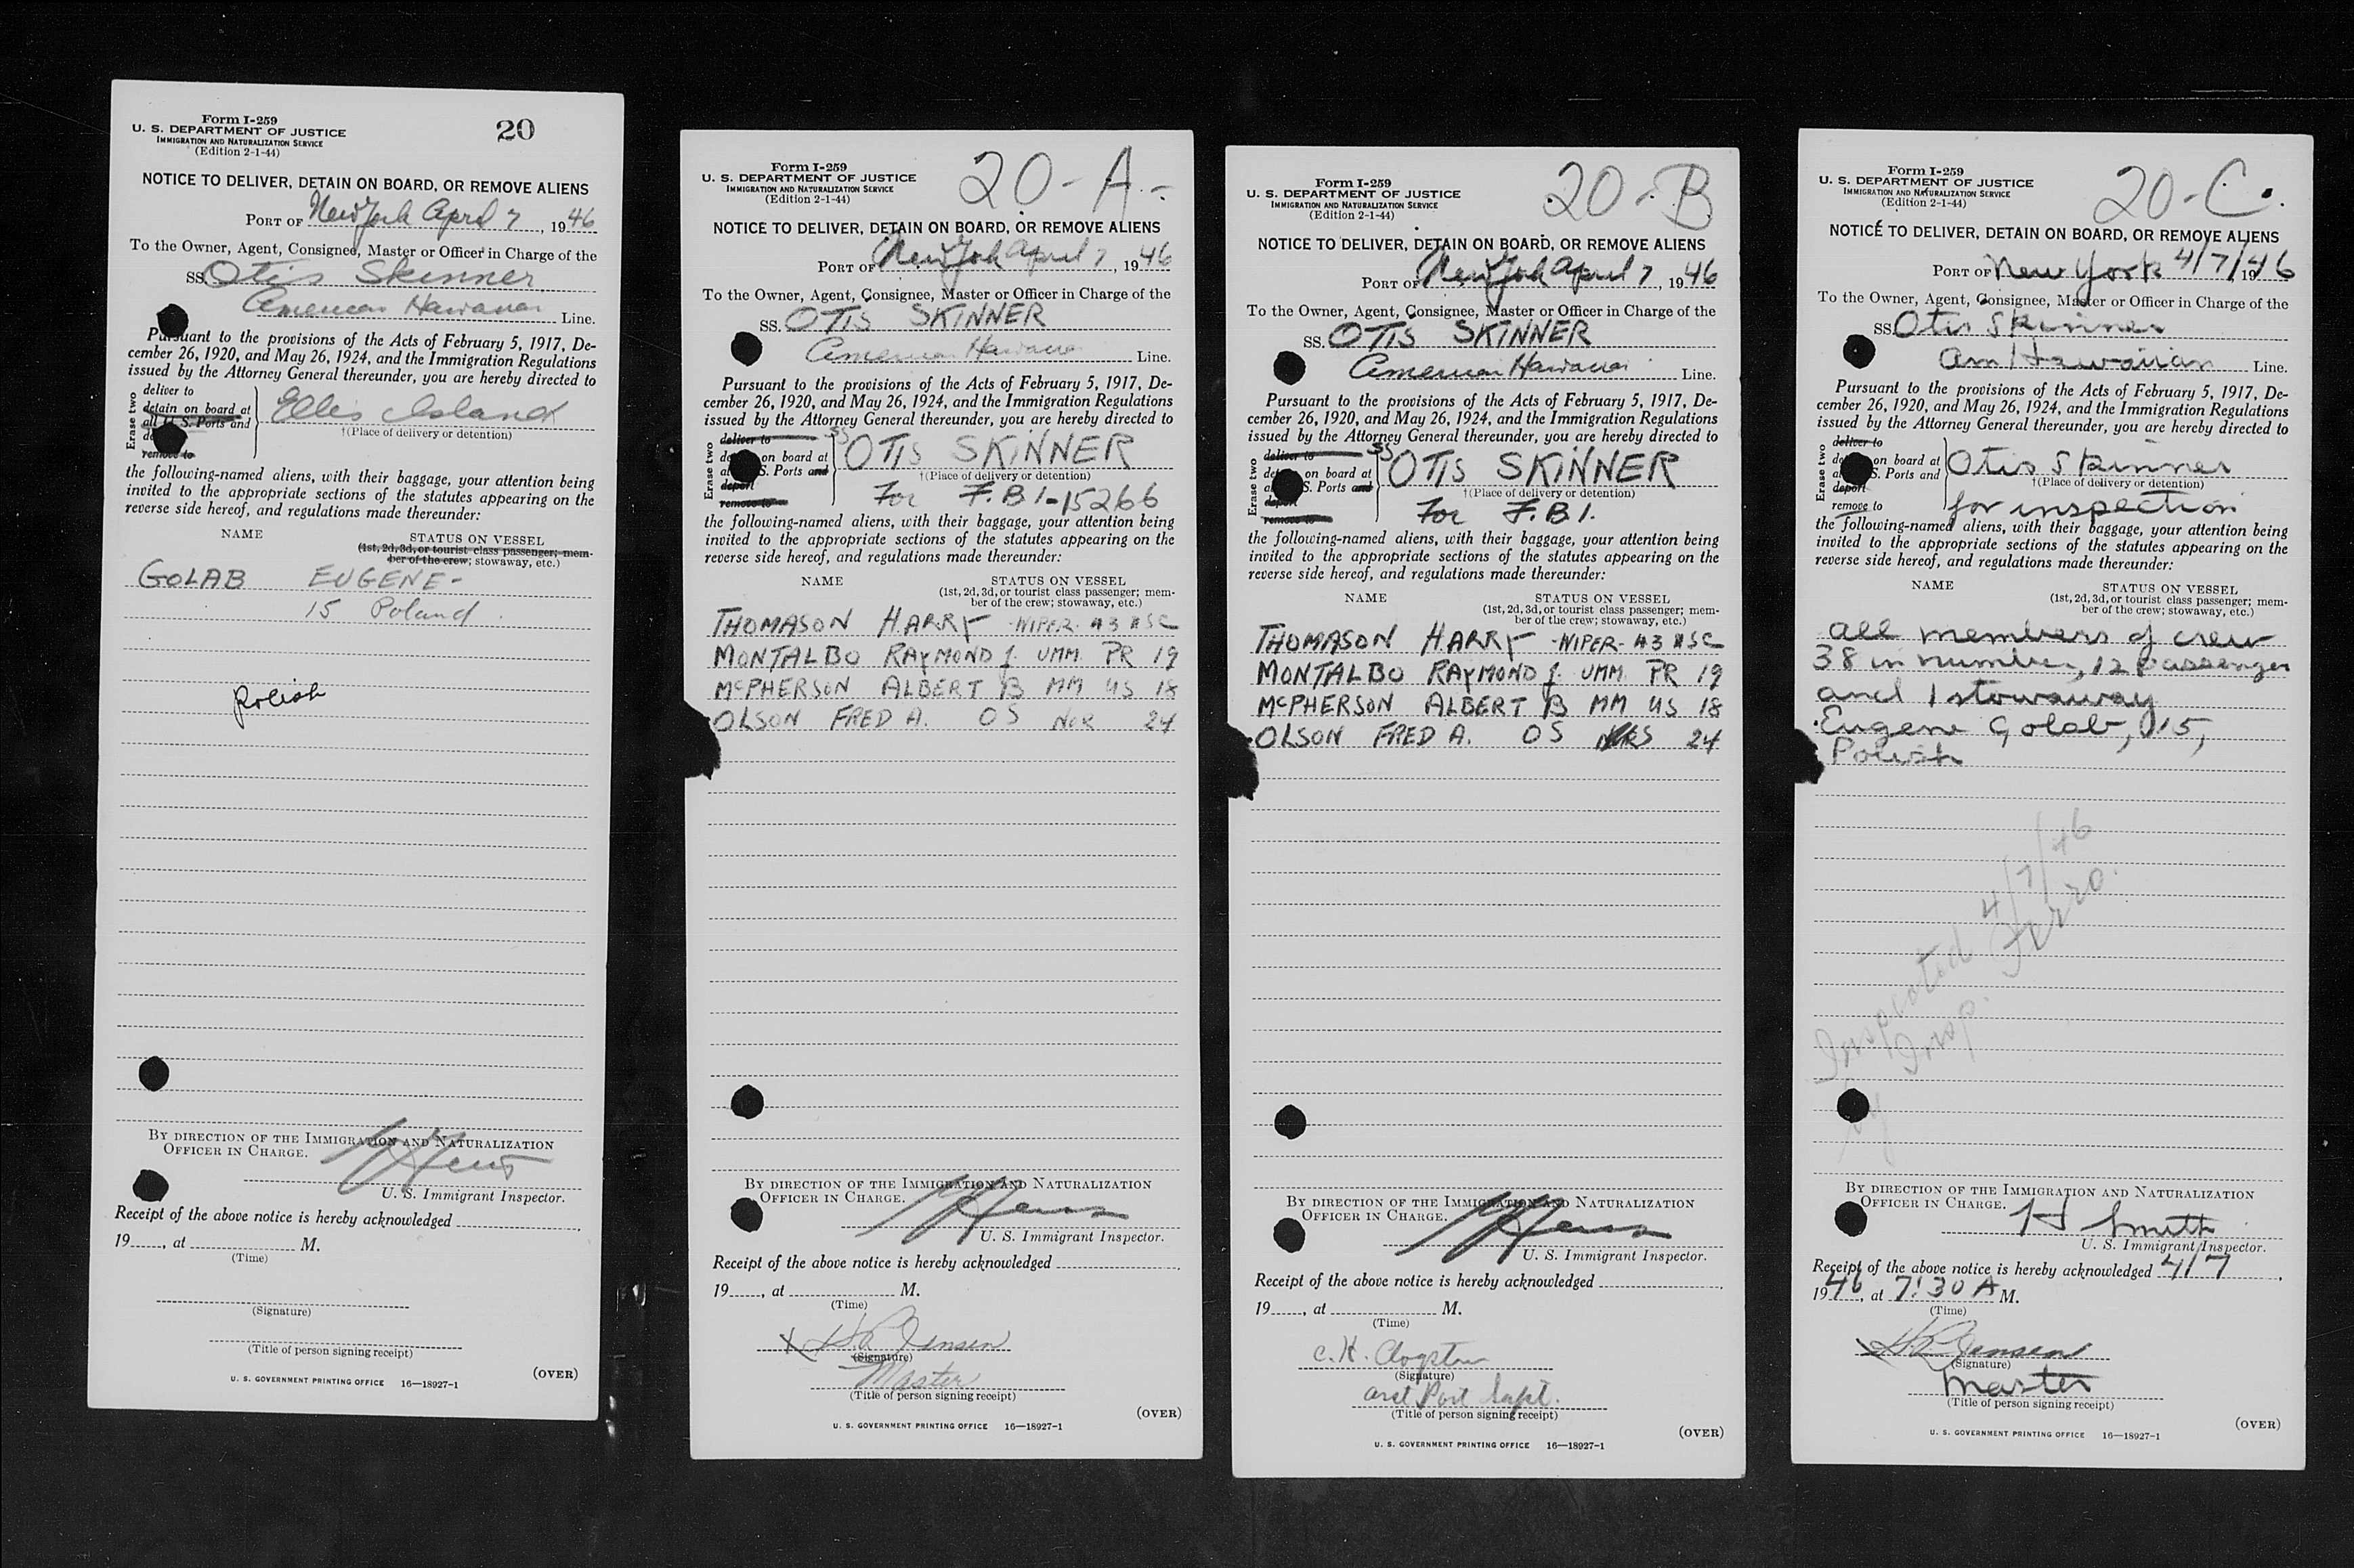 Form I-259
U. S. DEPARTMENT OF JUSTICE
IMMIGRATION AND NATURALIZATION SERVICE
(Edition 2-1-44)
20
NOTICE TO DELIVER, DETAIN ON BOARD, OR REMOVE ALIENS
PORT OF New York April 7, 1946
To the Owner, Agent, Consignee, Master or Officer in Charge of the
SS. Otis Skinner
American Hawaiian Line.
Pursuant to the provisions of the Acts of February 5, 1917, De-
cember 26, 1920, and May 26, 1924, and the Immigration Regulations
issued by the Attorney General thereunder, you are hereby directed to
Erase two
deliver to
detain on board at
all U. S. Ports and
remove to
Ellis Island
†(Place of delivery or detention)
the following-named aliens, with their baggage, your attention being
invited to the appropriate sections of the statutes appearing on the
reverse side hereof, and regulations made thereunder:
NAME STATUS ON VESSEL
(1st, 2d, 3d, or tourist class passenger; mem-
ber of the crew; stowaway, etc.)
GOLAB EUGENE-
15 Poland
Polish
BY DIRECTION OF THE IMMIGRATION AND NATURALIZATION
OFFICER IN CHARGE.
U. S. Immigrant Inspector.
Receipt of the above notice is hereby acknowledged
19 , at M.
(Time)
(Signature)
(Title of person signing receipt)
(OVER)
U. S. GOVERNMENT PRINTING OFFICE 16—18927-1
Form I-259
U. S. DEPARTMENT OF JUSTICE
IMMIGRATION AND NATURALIZATION SERVICE
(Edition 2-1-44)
20-A.-
NOTICE TO DELIVER, DETAIN ON BOARD, OR REMOVE ALIENS
PORT OF New York April 7, 1946
To the Owner, Agent, Consignee, Master or Officer in Charge of the
SS. OTIS SKINNER
American Hawaiian Line.
Pursuant to the provisions of the Acts of February 5, 1917, De-
cember 26, 1920, and May 26, 1924, and the Immigration Regulations
issued by the Attorney General thereunder, you are hereby directed to
Erase two
deliver to
on board at
S. Ports and
deport
remove to
SS OTIS SKINNER
†(Place of delivery or detention)
For F.B.I-15266
the following-named aliens, with their baggage, your attention being
invited to the appropriate sections of the statutes appearing on the
reverse side hereof, and regulations made thereunder:
NAME STATUS ON VESSEL
(1st, 2d, 3d, or tourist class passenger; mem-
ber of the crew; stowaway, etc.)
THOMASON HARRY -WIPER- 43 USC
MONTALBO RAYMOND J. UMM. PR 19
McPHERSON ALBERT B MM US 18
OLSON FRED A. OS NOR 24
BY DIRECTION OF THE IMMIGRATION AND NATURALIZATION
OFFICER IN CHARGE.
U. S. Immigrant Inspector.
Receipt of the above notice is hereby acknowledged
19 , at M.
(Time)
X H.R. Jensen
(Signature)
Master
(Title of person signing receipt)
(OVER)
U. S. GOVERNMENT PRINTING OFFICE 16—18927-1
Form I-259
U. S. DEPARTMENT OF JUSTICE
IMMIGRATION AND NATURALIZATION SERVICE
(Edition 2-1-44)
20-B
NOTICE TO DELIVER, DETAIN ON BOARD, OR REMOVE ALIENS
PORT OF New York April 7, 1946
To the Owner, Agent, Consignee, Master or Officer in Charge of the
SS. OTIS SKINNER
American Hawaiian Line.
Pursuant to the provisions of the Acts of February 5, 1917, De-
cember 26, 1920, and May 26, 1924, and the Immigration Regulations
issued by the Attorney General thereunder, you are hereby directed to
Erase two
deliver to
on board at
S. Ports and
deport
remove to
SS OTIS SKINNER
†(Place of delivery or detention)
For F.B.I.
the following-named aliens, with their baggage, your attention being
invited to the appropriate sections of the statutes appearing on the
reverse side hereof, and regulations made thereunder:
NAME STATUS ON VESSEL
(1st, 2d, 3d, or tourist class passenger; mem-
ber of the crew; stowaway, etc.)
THOMASON HARRY -WIPER- 43 USC
MONTALBO RAYMOND J. UMM. PR 19
McPHERSON ALBERT B MM US 18
OLSON FRED A. OS 24
BY DIRECTION OF THE IMMIGRATION AND NATURALIZATION
OFFICER IN CHARGE.
U. S. Immigrant Inspector.
Receipt of the above notice is hereby acknowledged
19 , at M.
(Time)
C.K. Clogston
(Signature)
asst Port Supt.
(Title of person signing receipt)
(OVER)
U. S. GOVERNMENT PRINTING OFFICE 16—18927-1
Form I-259
U. S. DEPARTMENT OF JUSTICE
IMMIGRATION AND NATURALIZATION SERVICE
(Edition 2-1-44)
20-C.
NOTICE TO DELIVER, DETAIN ON BOARD, OR REMOVE ALIENS
PORT OF New York 4/7/1946
To the Owner, Agent, Consignee, Master or Officer in Charge of the
SS. Otis Skinner
Am Hawaiian Line.
Pursuant to the provisions of the Acts of February 5, 1917, De-
cember 26, 1920, and May 26, 1924, and the Immigration Regulations
issued by the Attorney General thereunder, you are hereby directed to
Erase two
deliver to
on board at
S. Ports and
deport
remove to
Otis Skinner
†(Place of delivery or detention)
for inspection
the following-named aliens, with their baggage, your attention being
invited to the appropriate sections of the statutes appearing on the
reverse side hereof, and regulations made thereunder:
NAME STATUS ON VESSEL
(1st, 2d, 3d, or tourist class passenger; mem-
ber of the crew; stowaway, etc.)
all members of crew
38 in number, 12 passenger
and 1 stowaway
Eugene Golab, 15,
Polish
Inspected 4/7/46
Insp. Ferro.
BY DIRECTION OF THE IMMIGRATION AND NATURALIZATION
OFFICER IN CHARGE.
H Smith
U. S. Immigrant Inspector.
Receipt of the above notice is hereby acknowledged 4/7,
1946, at 7:30 A M.
(Time)
H.R. Jensen
(Signature)
Master
(Title of person signing receipt)
(OVER)
U. S. GOVERNMENT PRINTING OFFICE 16—18927-1